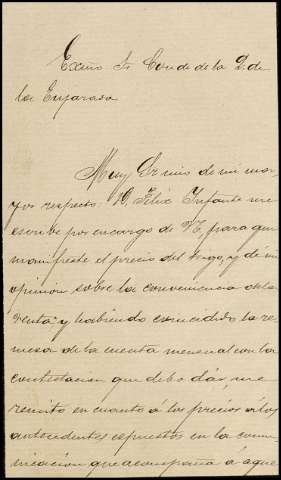 Exmo Sr Conde de la O. de
los Enfarasa
Muy Sr mio de mi ma-
yor respecto: D. Felix Infante me
escribe por encargo de V. para que
manifieste el precio del trigo, y dé mi
opinión sobre la conveniencia de la
venta y habiendo coincidido la re-
mesa de la cuenta mensual con la
contestacion que debo dar, me
remito en cuanto á los precios á los
antecedentes espuestos en la comu-
nicacion que acompaña á aque